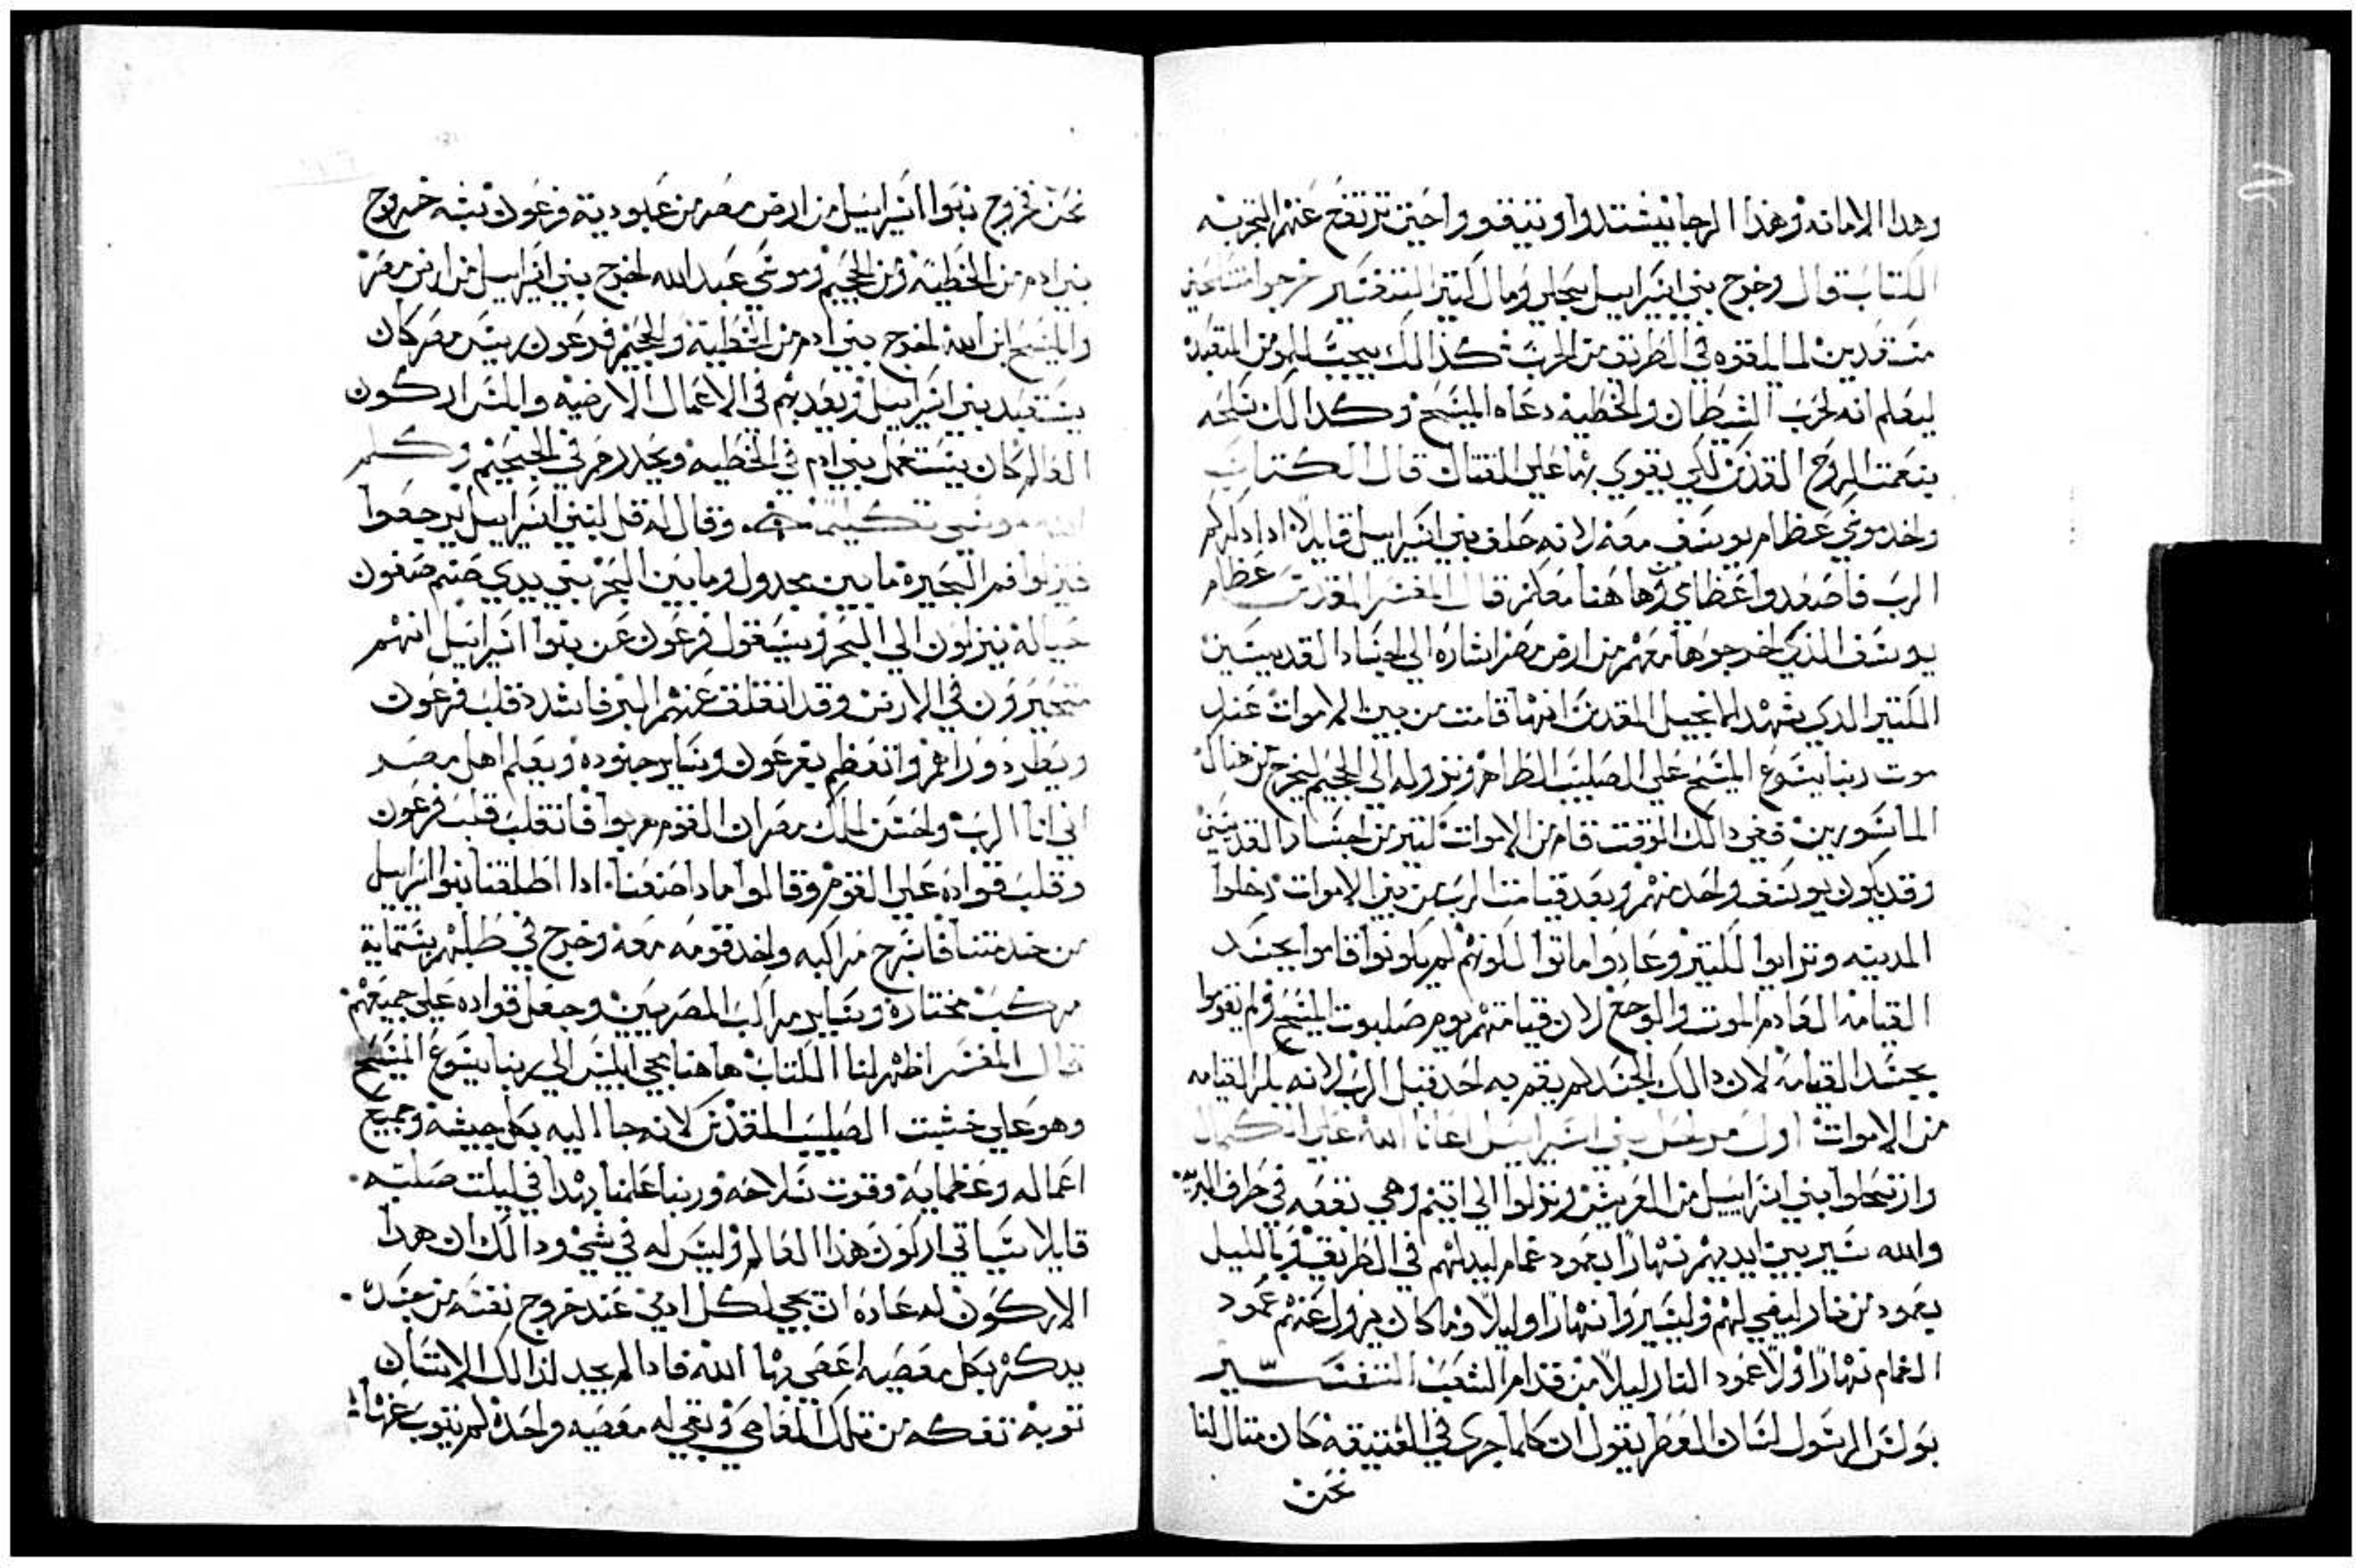 وهدا الامانه وهدا الرجا يشتدوا ويتيقوا حين ترتفع عنهم التجربه
الكتاب قال وخرج بني اسراييل بحلي ومال كتير التفسير خرجوا متسلحين
مستعدين لما يلقوه في الطريق من الحرب كذالك يجب للمومن المتعبد
ليعلم انه لحرب الشيطان والخطيه دعاه المسيح وكدالك نسلحه
بنعمت الروح القدس لكي يقوي بها على القتال قال الكتاب
واخد موسى عظام يوسف معه لانه حلف بني اسراييل قايلا ادا دكركم
الرب فاصعدوا عظامي من هاهنا معكم قال المفسر المقدس عظام
يوسف الذي اخرجوها معهم من ارض مصر اشاره الى اجساد القديسين
الكتير الدي يشهد الانجيل المقدس انها قامت من بين الاموات عند
موت ربنا يسوع المسيح على الصليب الطاهر ونزوله الى الجحيم ليخرج من هناك
الماسورين ففي دالك الوقت قام من الاموات كتير من اجساد القديسين
وقد يكون يوسف واحد منهم وبعد قيامت الرب من بين الاموات دخلوا
المدينه وتراوا لكتير وعادوا ماتوا لكونهم لم يكونوا قاموا بجسد
القيامه العادم الموت والوجع لان قيامتهم يوم صلبوت المسيح ولم يقوموا
بجسد القيامه لان دالك الجسد لم يقم به احد قبل الرب لانه بكر القيامه
من الاموات اول مرحل بني اسراييل اعانا الله على الكمال
وارتحلوا بني اسراييل من العريش ونزلوا الى اتيم وهي بقعه في طرف البريه
والله يسير بين ايديهم نهارا بعمود غمام ليدلهم في الطريق وبالليل
بعمود من نار ليضي لهم وليسيروا نهارا وليلا وما كان يزول عنهم عمود
الغمام نهارا ولا عمود النار ليلا من قدام الشعب التفسير
بولس الرسول لسان العطر يقول ان كلما جرى في العتيقه كان متال لنا
نحن
نحن فخروج بنوا اسراييل من ارض مصر من عبودية فرعون تشبه خروج
بني ادم من الخطية ومن الجحيم وموسى عبد الله اخرج بني اسراييل من ارض مصر
والمسيح ابن الله اخرج بني ادم من الخطية والجحيم فرعون رييس مصر كان
يستعبد بني اسراييل ويعدبهم في الاعمال الارضيه والشرار اركون
العالم كان يستعمل بني ادم في الخطيه ويحدرهم في الجحيم وكلم
الله موسى تكليما وقال له قل لبني اسراييل يرجعوا
فينزلوا فم البحيرة ما بين مجدول وما بين البحر بين يدي صنم صفون
حياله ينزلون الى البحر وسيقول فرعون عن بنوا اسراييل انهم
متحيرون في الارض وقد انغلق عنهم البر فاشدد قلب فرعون
ويطرد وراهم واتعظم بفرعون وساير جنوده ويعلم اهل مصر
اني انا الرب واحسن الملك مصر ان القوم هربوا فانقلب قلب فرعون
وقلب قواده على القوم وقالوا مادا صنعنا ادا اطلقنا بنوا اسراييل
من خدمتنا فاسرج مراكبه واخد قومه معه وخرج في طلبهم بستماية
مركب مختارة وساير مراكب المصريين وجعل قواده على جميعهم
قال المفسر اظهر لنا الكتاب هاهنا مجي ابليس الى ربنا يسوع المسيح
وهو على خشبت الصليب المقدس لانه جا اليه بكل جيشه وجميع
اعماله وعظمايه وقوت سلاحه وربنا علمنا بهدا في ليلت صلبه
قايلا سياتي اركون هذا العالم وليس له في شي ودالك ان هدا
الاركون له عاده ان يجي لكل ادمي عند خروج نفسه من جسده
يدكره بكل معصيه اعصى بها الله فادا لم يجد لذالك الانسان
توبة تفكه من تلك المعاصي وبقي له معصيه واحده لم يتوب عنها